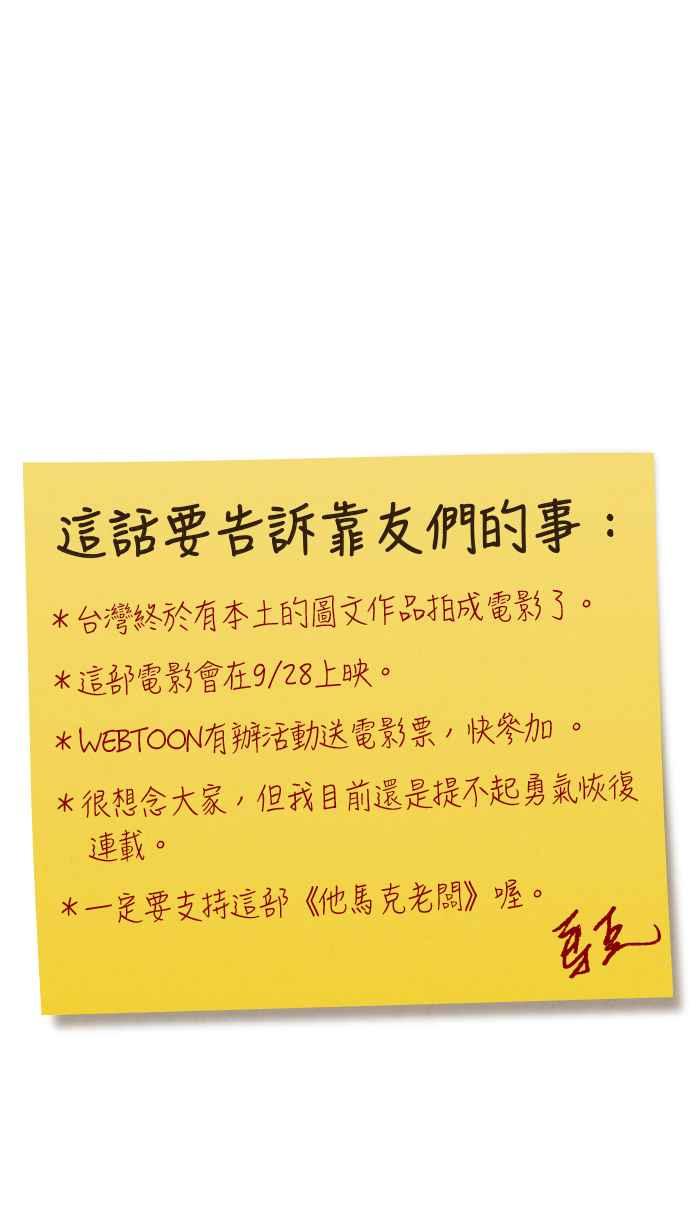 這話要告訴靠友們的事：
＊台灣終於有本土的圖文作品拍成電影了。
＊這部電影會在9/28上映。
＊WEBTOON有辦活動送電影票，快參加 。
＊很想念大家，但我目前還是提不起勇氣恢復
連載。
＊一定要支持這部《他馬克老闆》喔。